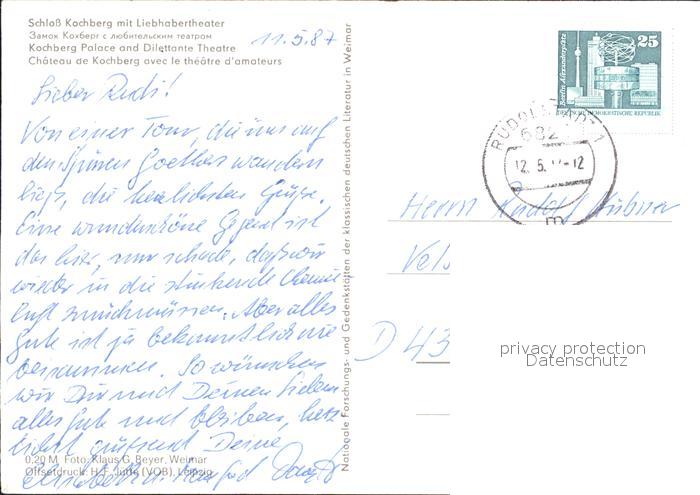 Schloß Kochberg mit Liebhabertheater
Замок Кохберг с любительским театром
Kochberg Palace and Dilettante Theatre
Château de Kochberg avec le théâtre d'amateurs
11.5.87
Lieber Rudi!
Von einer Tour, die uns auf
den Spuren Goethes wandern
ließ, die herzlichsten Grüße.
Eine wunderschöne Gegend ist
das hier, nur schade, daß wir
wieder in die stinkende Chemie
luft zurückmüssen. Aber alles
Gute ist ja bekanntlich nie
beisammen. So wünschen
wir Dir und Deinen Lieben
alles Gute und bleiben, herz
lichst grüßend Deine
0,20 M Foto: Klaus G. Beyer, Weimar
Offsetdruck: H. F. Jütte (VOB), Leipzig
Nationale Forschungs- und Gedenkstätten der klassischen deutschen Literatur in Weimar
25
Berlin, Alexanderplatz
DEUTSCHE DEMOKRATISCHE REPUBLIK
RUDOLSTADT 1
682
12.5. -12
m
Herrn Rudolf Hübner
Vel
D 43
privacy protection
Datenschutz